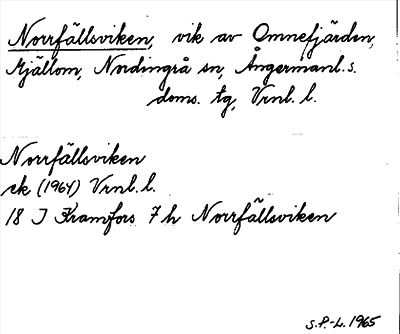 Norrfällsviken, vik av Omnefjärden,
Mjällom, Nordingrå sn, Ångermanl. s.
doms. tg, Vrnl. l.
Norrfällsviken
ek (1964) Vrnl. l.
18 J Kramfors 7 h Norrfällsviken
S.P.-L. 1965